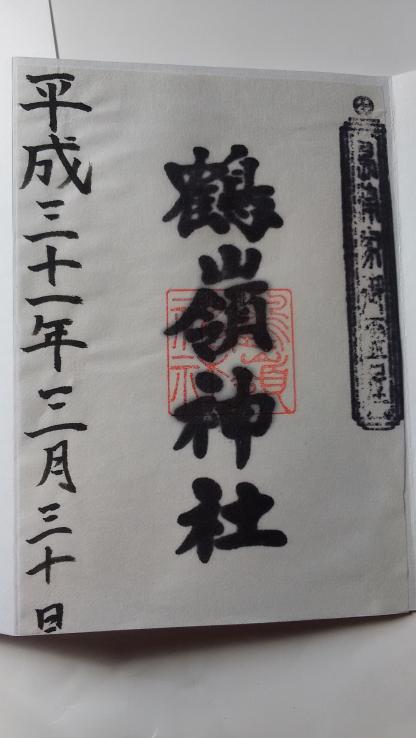 島津家
鶴嶺神社
鶴嶺
神社
平成三十一年三月三十日